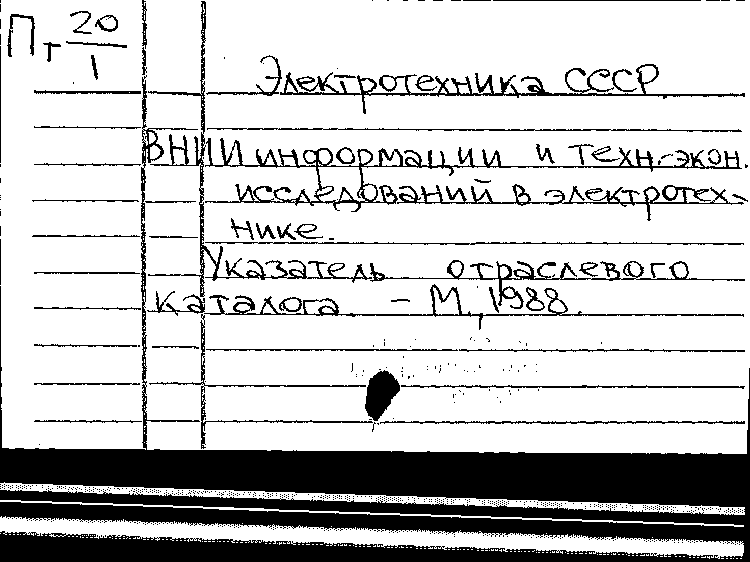 Пт 20/1
Электротехника СССР.
ВНИИ информации и техн.-экон.
исследований в электротех-
нике.
Указатель отраслевого
каталога. – М., 1988.